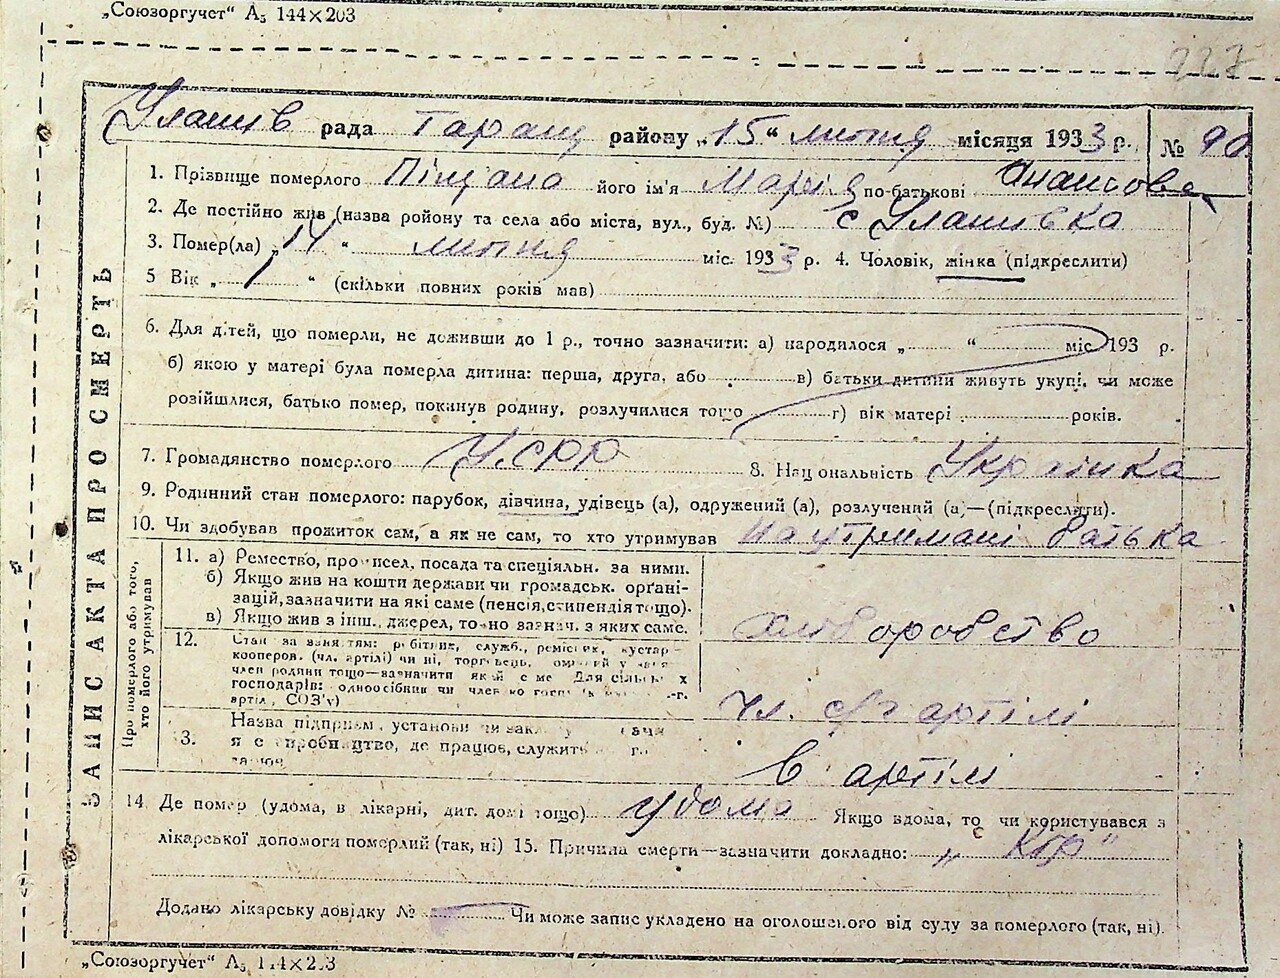 „Союзоргучет“ А₅ 144×203
227
Улашів рада Таращ району „15“ лютня місяця 1933 р. № 90
1. Прізвище померлого Піщана його ім'я Марія по-батькові
2. Де постійно жив (назва ройону та села або міста, вул., буд. №) с Улашівка
3. Помер(ла) „14“ лютня міс. 1933 р. 4. Чоловік, жінка (підкреслити)
5 Вік „1“ (скільки повних років мав)
6. Для дітей, що померли, не доживши до 1 р., точно зазначити: а) народилося „ “ міс 193 р.
б) якою у матері була померла дитина: перша, друга, або в) батьки дитини живуть укупі, чи може
розійшлися, батько помер, покинув родину, розлучилися тощо г) вік матері років.
7. Громадянство померлого УСРР 8. Нац ональність Українка
9. Родинний стан померлого: парубок, дівчина, удівець (а), одружений (а), розлучений (а)—(підкреслити).
10. Чи здобував прожиток сам, а як не сам, то хто утримував на утримані батька
ЗАПИС АКТА ПРО СМЕРТЬ
Про померлого або того, хто його утримував
11. а) Ремество, про исел, посада та спеціяльн. за ними.
б) Якщо жив на кошти держави чи громадськ. орґані-
зацій, зазначити на які саме (пенсія, стипендія тощо).
в) Якщо жив з інш., джерел, то но зазнач. з яких саме.
хліборобство
12. Стан за заняттям: робітник, служб., реміснк, кустар-
кооперов. (чл. артілі) чи ні, торговець,
член родини тощо—зазначити який с ме Для сільськ х
господарів: одноосібник чи член
артіл, СОЗ'у)
чл. с/г артілі
Назва підприєм, установи чи
3. я с виробництво, де працює, служить
в артілі
14 Де помер (удома, в лікарні, дит. домі тощо) удома Якщо вдома, то чи користувався з
лікарської допомоги померлий (так, ні) 15. Причина смерти—зазначити докладно:
Додано лікарську довідку № Чи може запис укладено на оголошеного від суду за померлого (так, ні).
„Союзоргучет“ А₅ 144×203